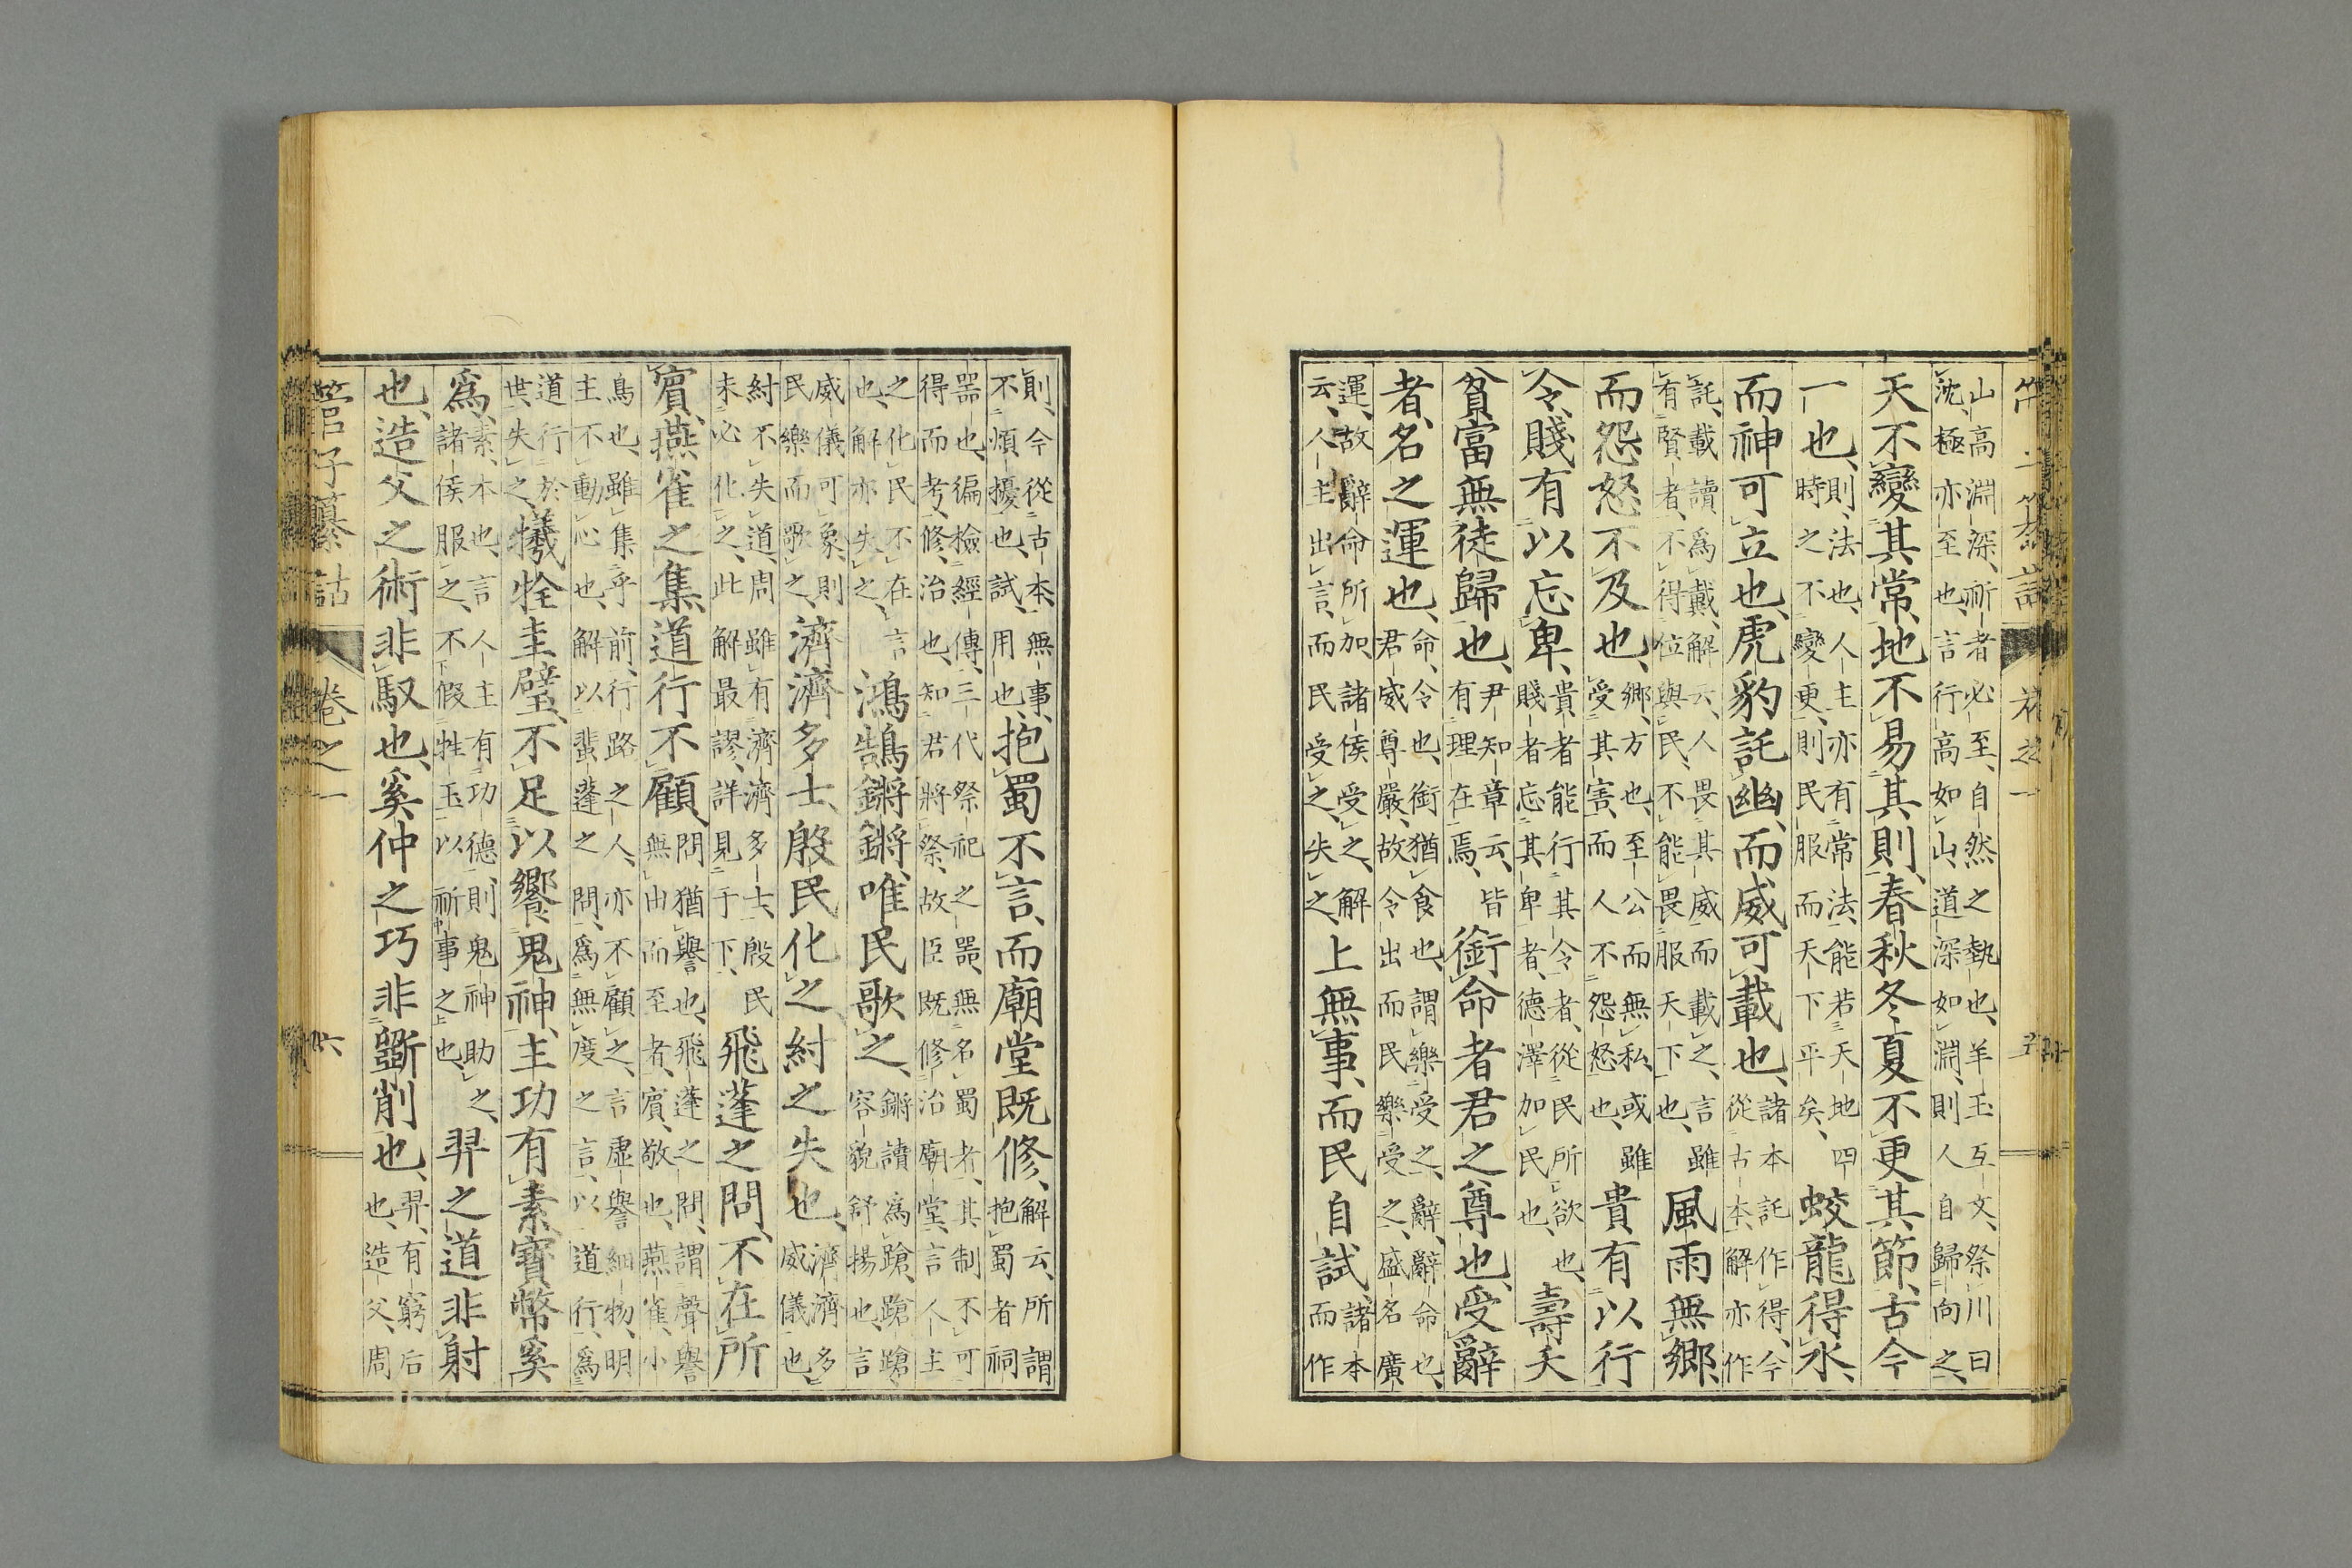 山高淵深祈者必至、自然之埶也、羊玉互文、祭川曰
沈、極亦至也、言行高如山、道深如淵、則人自歸向之、
天不變其常、地不易其則、春秋冬夏不更其節、古今
一也、則、法也、人主亦有常法、能若天地四
時之不變更、則民服而天下平矣、蛟龍得水、
而神可立也、虎豹託幽、而威可載也、諸本託作得、今
從古本、解亦作
託、載讀爲戴、解云、人畏其威而載之、言雖
有賢者、不得位與民、不能畏服天下也、風雨無鄉、
而怨怒不及也、鄉、方也、至公而無私、或雖
受其害、而人不怨怒也、貴有以行
令、賤有以忘卑、貴者能行其令者、從民所欲也、
賤者忘其卑者、德澤加民也、壽夭
貧富無徒歸也、尹知章云、皆
有理在焉、銜命者君之尊也、受辭
者、名之運也、命、令也、銜猶食也、謂樂受之、辭、辭命也、
君威尊嚴、故令出而民樂受之、盛名廣
運、故辭命所加、諸侯受之、解
云、人主出言、而民受之、失之、上無事、而民自試、諸本
而作
則、今從古本、無事、
不煩擾也、試、用也、抱蜀不言、而廟堂既修、解云、所謂
抱蜀者祠
噐也、徧檢經傳、三代祭祀之噐、無名蜀者、其制不可
得而考、修、治也、知君將祭、故臣既修治廟堂、言人主
之化民、不在言
也、解亦失之、鴻鵠鏘鏘、唯民歌之、鏘讀爲蹌、蹌蹌
容貌舒揚也、言
威儀可象、則
民樂而歌之、濟濟多士、殷民化之、紂之失也、濟濟、多
威儀也
紂不失道、周雖有濟濟多士、殷民
未必化之、此解最謬、詳見于下、飛蓬之問、不在所
賓、燕雀之集、道行不顧、問猶譽也、飛蓬之問、謂聲譽
無由而至者、賓、敬也、燕雀、小
鳥也、雖集乎前、行路之人、亦不顧之、言虛譽細物、明
主不動心也、解以蜚蓬之問、爲無度之言、以道行、爲
道行於
世、失之、犧牷圭璧、不足以饗鬼神、主功有素、寶幣奚
爲、素、本也、言人主有功德、則鬼神助之、
諸侯服之、不假牲玉以祈事之也、羿之道、非射
也、造父之術、非馭也、奚仲之巧、非斵削也、羿、有窮后
也、造父、周
管子纂詁 卷之一 六